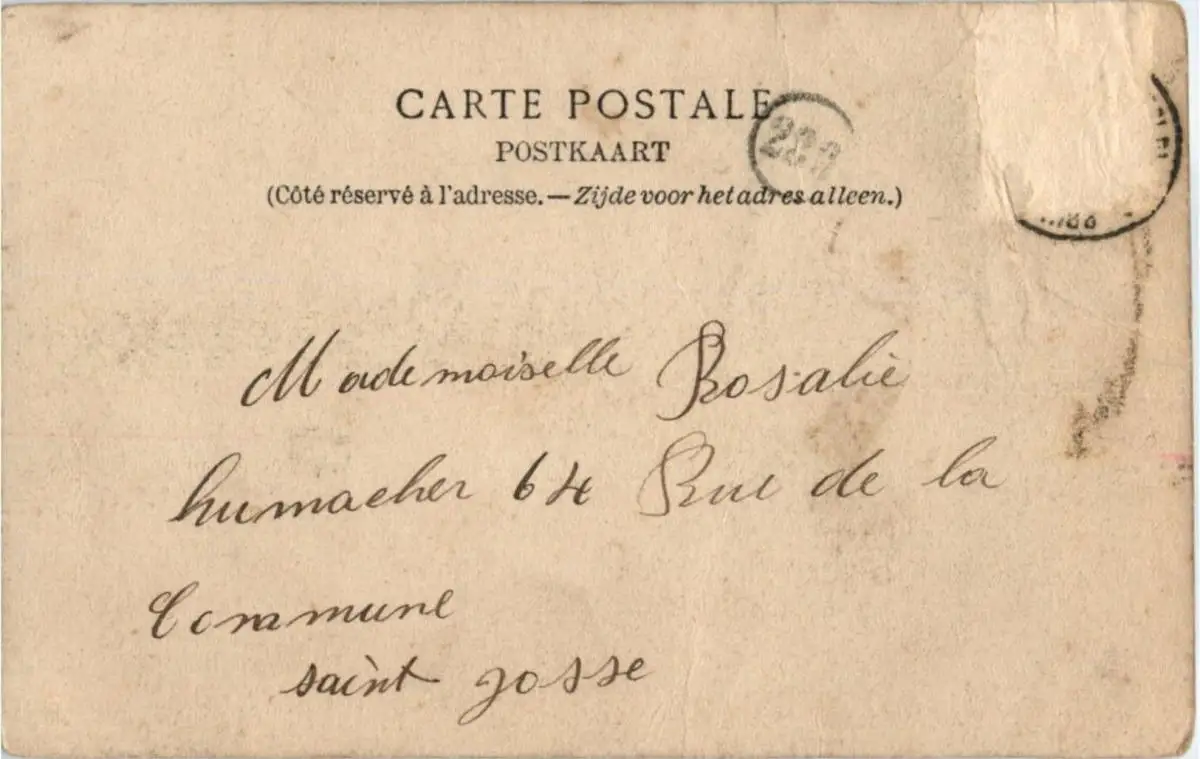 CARTE POSTALE
POSTKAART
(Côté réservé à l'adresse. — Zijde voor het adres alleen.)
Mademoiselle Rosalie
humacher 64 Rue de la
Commune
saint josse